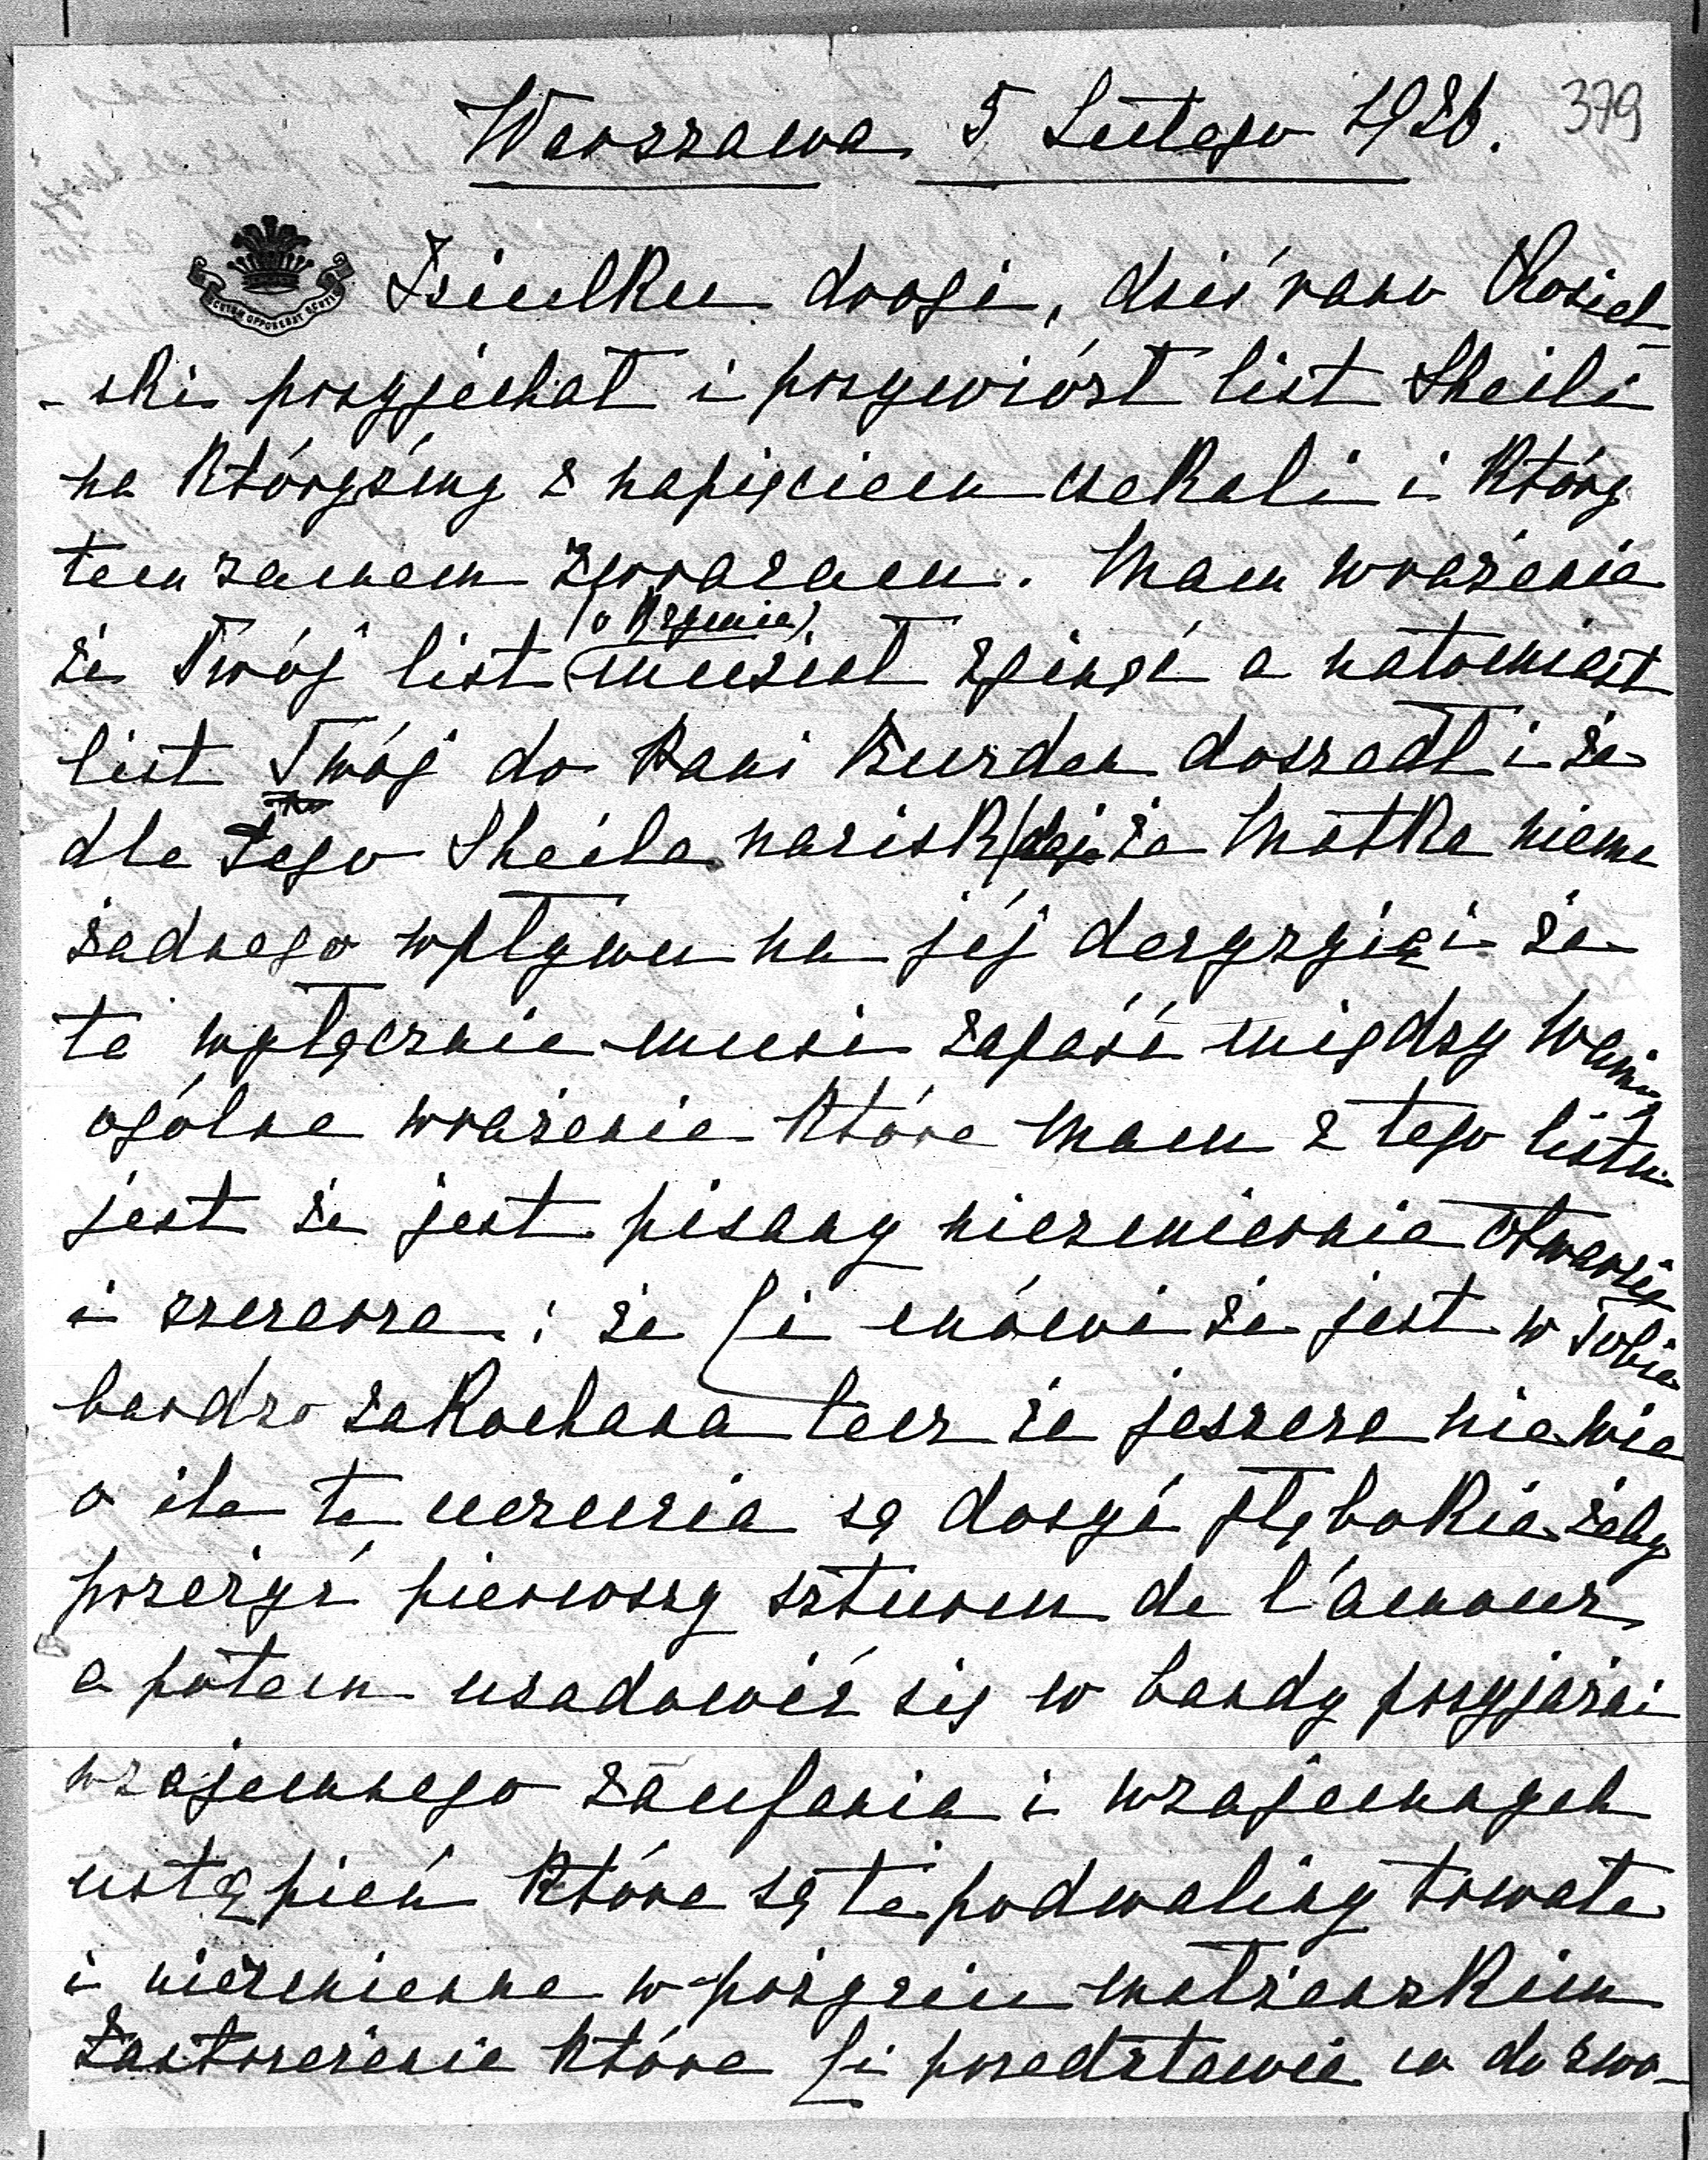 379
Warszawa 5 Lutego 1926.
SCUTUM OPPONEBAT SCUTIS
Dziulku drogi, dziś rano Kosiel-
-ski przyjechał i przywiózł list Sheili
na któryśmy z napięciem czekali i który
tem samem zwracam. Mam wrażenie
(o Rzymie)
że Twój list musiał zginąć a natomiast
list Twój do Pani Burden doszedł i że
dla tego Sheila nacisk daje że Matka niema
żadnego wpływu na jéj decyzyię i że
ta wyłącznie musi zapaść między Wami
ogólne wrażenie które mam z tego listu
jest że jest pisany niezmiernie otwarcie
i szczerze: że Ci mówi że jest w Tobie
bardzo zakochana lecz że jeszcze nie wie
o ile te uczucia są dosyć głębokie żeby
przeżyć pierwszy szturm de l'amour
a potem usadowić się w bandy przyjaźni
wzajemnego zaufania i wzajemnych
ustąpień które są te podwaliny trwałe
i niezmienne w pożyciu małżeńskim
Zastrzeżenie które Ci przedstawia co do zwa-